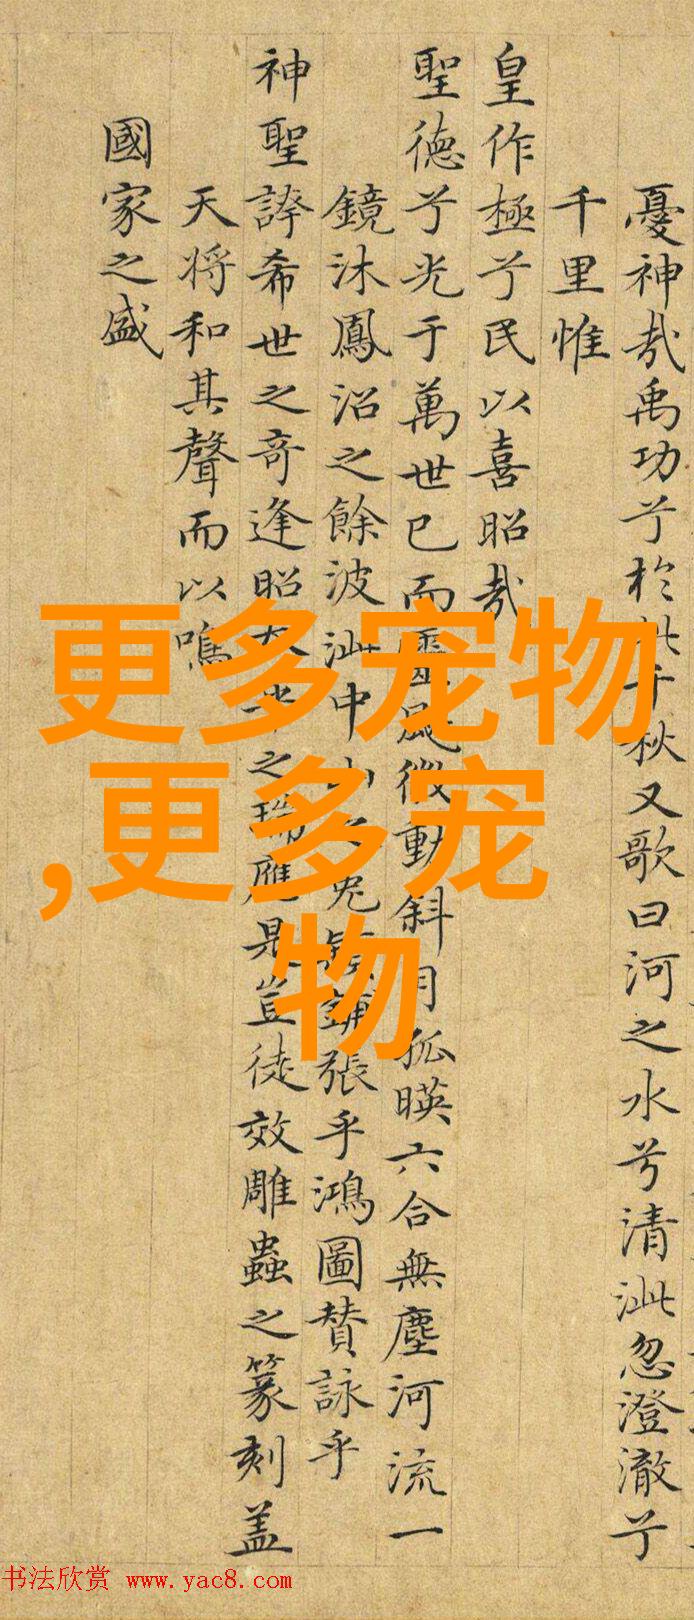 憂神哉禹功兮於此千秋又歌曰河之水兮清泚忽澄澈兮
千里惟
皇作極兮民以喜昭哉
聖德兮光于萬世已而靈微動斜月孤暎六合無塵河流一
鏡沐鳳沼之餘波泚中山兔鋪張乎鴻圖賛詠乎
神聖誇希世之奇逢昭之瑞應是豈徒效雕蟲之篆刻盖
天将和其聲而以鳴
國家之盛
更多宠物
,更多宠
物
书法欣赏 www.yac8.com